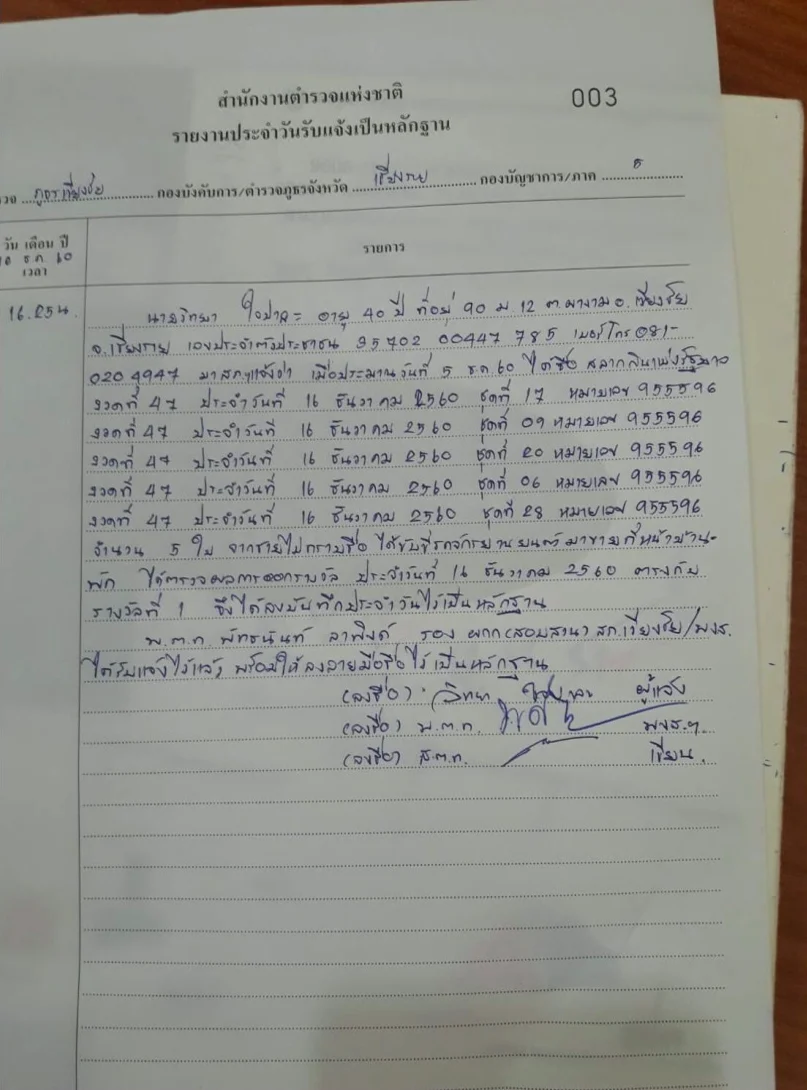 สำนักงานตำรวจแห่งชาติ
003
รายงานประจำวันรับแจ้งเป็นหลักฐาน
วจ ภูธรเวียงชัย กองบังคับการ/ตำรวจภูธรจังหวัด เชียงราย กองบัญชาการ/ภาค ๕
วัน เดือน ปี
16 ธ.ค. 60
เวลา
รายการ
16.25น.
นายวิทยา ใจปาละ อายุ 40 ปี ที่อยู่ 90 ม.12 ต.ผางาม อ.เวียงชัย
จ.เชียงราย เลขประจำตัวประชาชน 35702 00447 785 เบอร์โทร 081-
020 4947 มาสภ.ฯแจ้งว่า เมื่อประมาณวันที่ 5 ธ.ค. 60 ได้ซื้อ สลากกินแบ่งรัฐบาล
งวดที่ 47 ประจำวันที่ 16 ธันวาคม 2560 ชุดที่ 17 หมายเลข 955596
งวดที่ 47 ประจำวันที่ 16 ธันวาคม 2560 ชุดที่ 09 หมายเลข 955596
งวดที่ 47 ประจำวันที่ 16 ธันวาคม 2560 ชุดที่ 20 หมายเลข 955596
งวดที่ 47 ประจำวันที่ 16 ธันวาคม 2560 ชุดที่ 06 หมายเลข 955596
งวดที่ 47 ประจำวันที่ 16 ธันวาคม 2560 ชุดที่ 28 หมายเลข 955596
จำนวน 5 ใบ จากชายไม่ทราบชื่อ ได้ขับขี่รถจักรยานยนต์มาขายที่หน้าบ้าน-
พัก ได้ตรวจผลการออกรางวัล ประจำวันที่ 16 ธันวาคม 2560 ตรงกับ
รางวัลที่ 1 จึงได้ลงบันทึกประจำวันไว้เป็นหลักฐาน
พ.ต.ท. พัทธนันท์ ลาพิงค์ รอง ผกก.(สอบสวน) สภ.เวียงชัย/พงส.
ได้รับแจ้งไว้แล้ว พร้อมให้ลงลายมือชื่อไว้เป็นหลักฐาน
(ลงชื่อ) วิทยา ใจปาละ ผู้แจ้ง
(ลงชื่อ) พ.ต.ท. พงส.ฯ
(ลงชื่อ) ส.ต.ท. เขียน